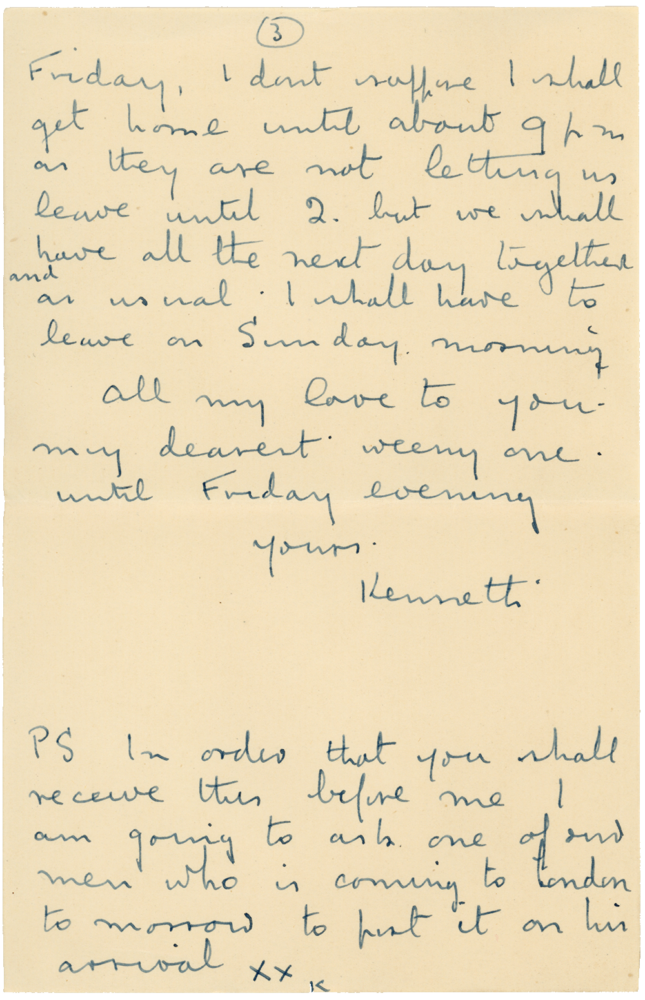 3
Friday, I dont suppose I shall
get home until about 9 pm
as they are not letting us
leave until 2. but we shall
have all the next day together
and
as usual. I shall have to
leave on Sunday. morning
all my love to you-
my dearest weeny one.
until Friday evening
yours.
Kenneth
PS In order that you shall
receive this before me I
am going to ask one of our
men who is coming to London
to morrow to post it on his
arrival xx K